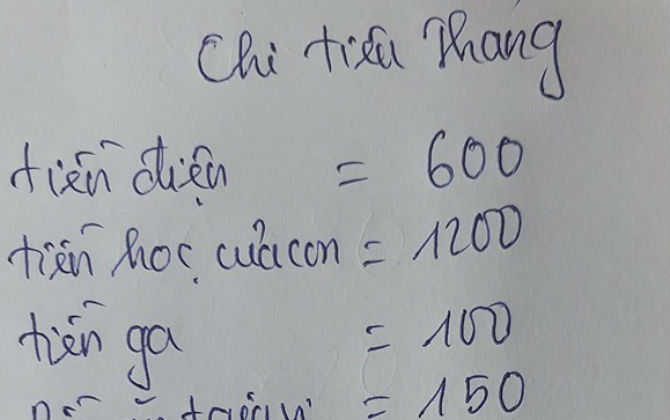 Chi tiêu Tháng
tiền điện = 600
tiền học của con = 1200
tiền ga = 100
= 150